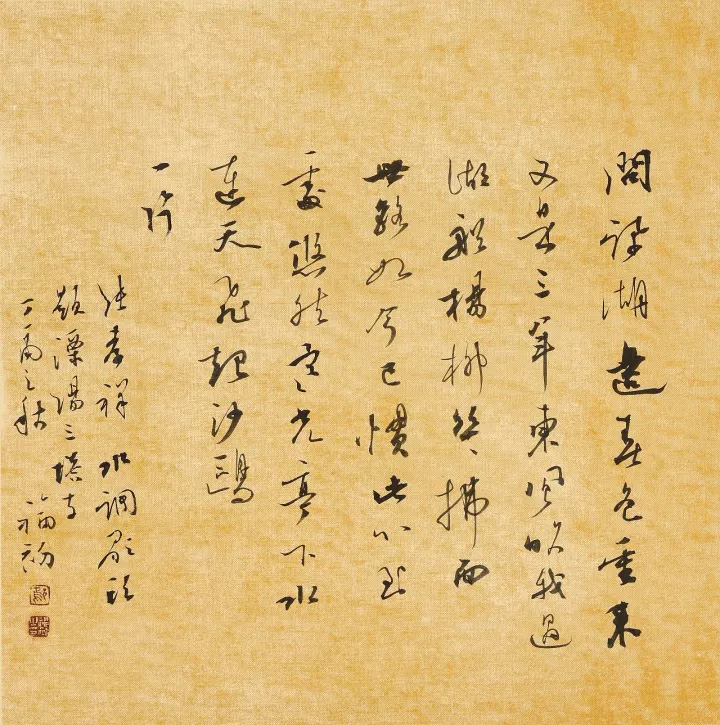 問訊湖邊春色重來
又是三年東風吹我過
湖船楊柳絲〻拂面
世路如今已慣此心到
處悠然寒光亭下水
連天飛起沙鷗
一片
張孝祥 水調歌頭
題溧陽三塔寺
之秋 福